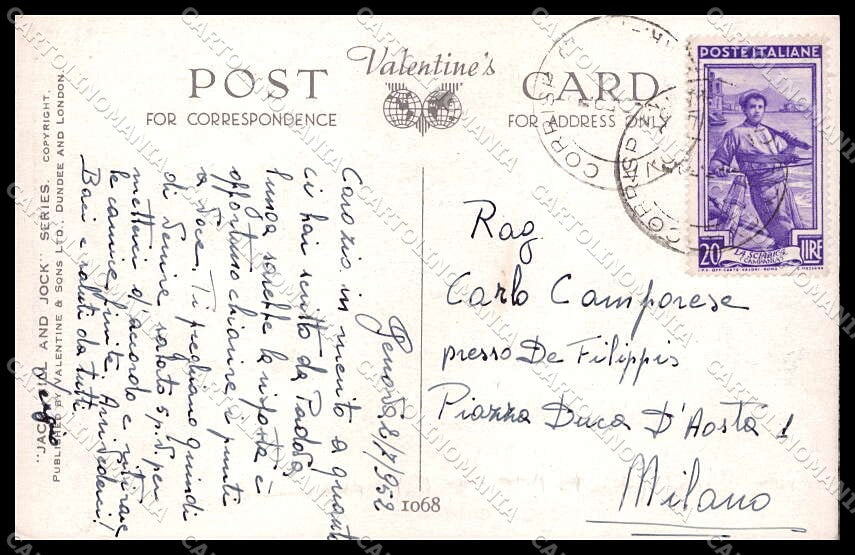 Valentine's
POST CARD
FOR CORRESPONDENCE
FOR ADDRESS ONLY
"JACK, JILL AND JOCK" SERIES. COPYRIGHT.
PUBLISHED BY VALENTINE & SONS LTD., DUNDEE AND LONDON.
1068
POSTE ITALIANE
20 LIRE
LA SCIABICA
CAMPANIA
CORRISP
CORRISP
Genova 2/7/952
Caro zio in merito a quanto
ci hai scritto da Padova,
lunga sarebbe la risposta è
opportuno chiarire i punti
a voce. Ti preghiamo quindi
di venire sabato sp.v. per
metterci d'accordo e ritirare
le camicie finite. Arrivederci!
Baci e saluti da tutti
Sergio
Rag
Carlo Camporese
presso De Filippis
Piazza Duca D'Aosta 1
Milano
CARTOLINOMANIA